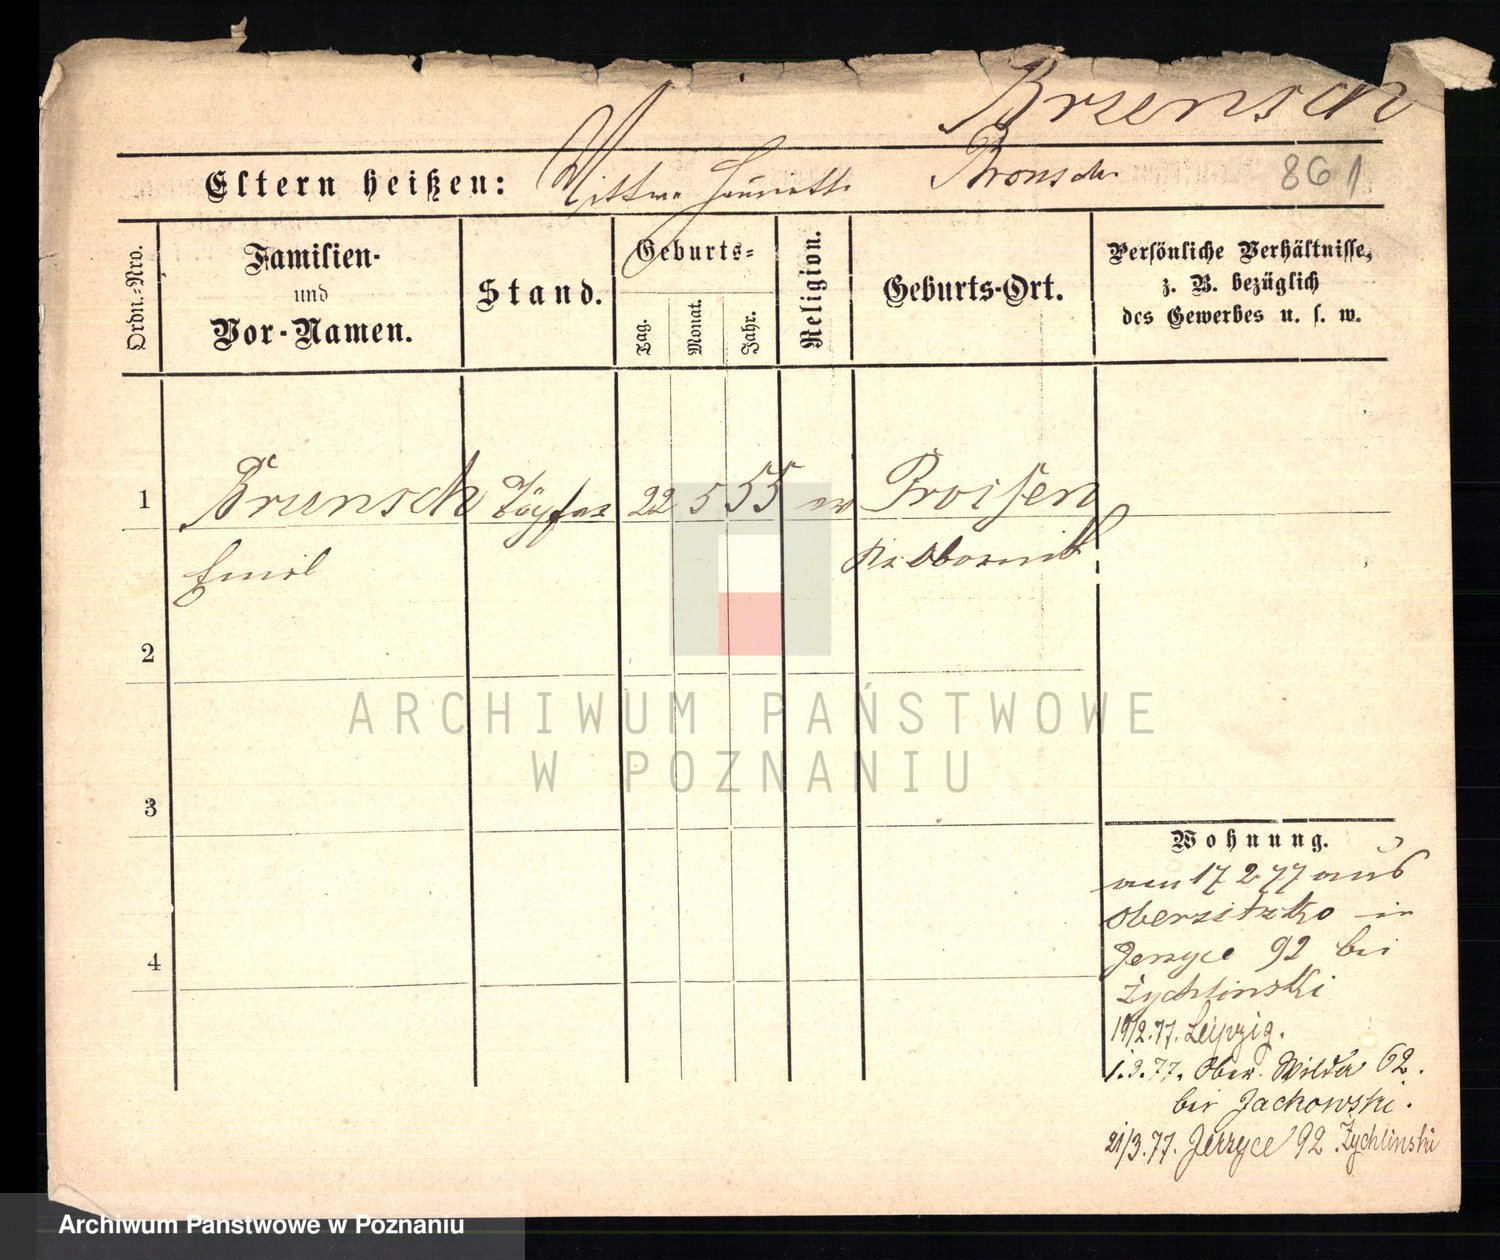 Brzensch
Eltern heißen: Wittwe Bronsch 861
Ordn.-Nro.
Familien-
und
Vor-Namen.
Stand.
Geburts-
Tag.
Monat.
Jahr.
Religion.
Geburts-Ort.
Persönliche Verhältnisse,
z. B. bezüglich
des Gewerbes u. s. w.
1 Brunsch Töpfer 22 5 55 ev
Emil Obornik
2
3
4
Wohnung.
am 17 2 77 aus
Obersitzko in
Jerzyce 92 bei
Zychlinski
19/2.77. Leipzig.
1.3.77. Ober Wilda 62.
bei Jackowski.
21/3.77. Jerzyce 92 Zychlinski
ARCHIWUM PAŃSTWOWE
W POZNANIU
Archiwum Państwowe w Poznaniu